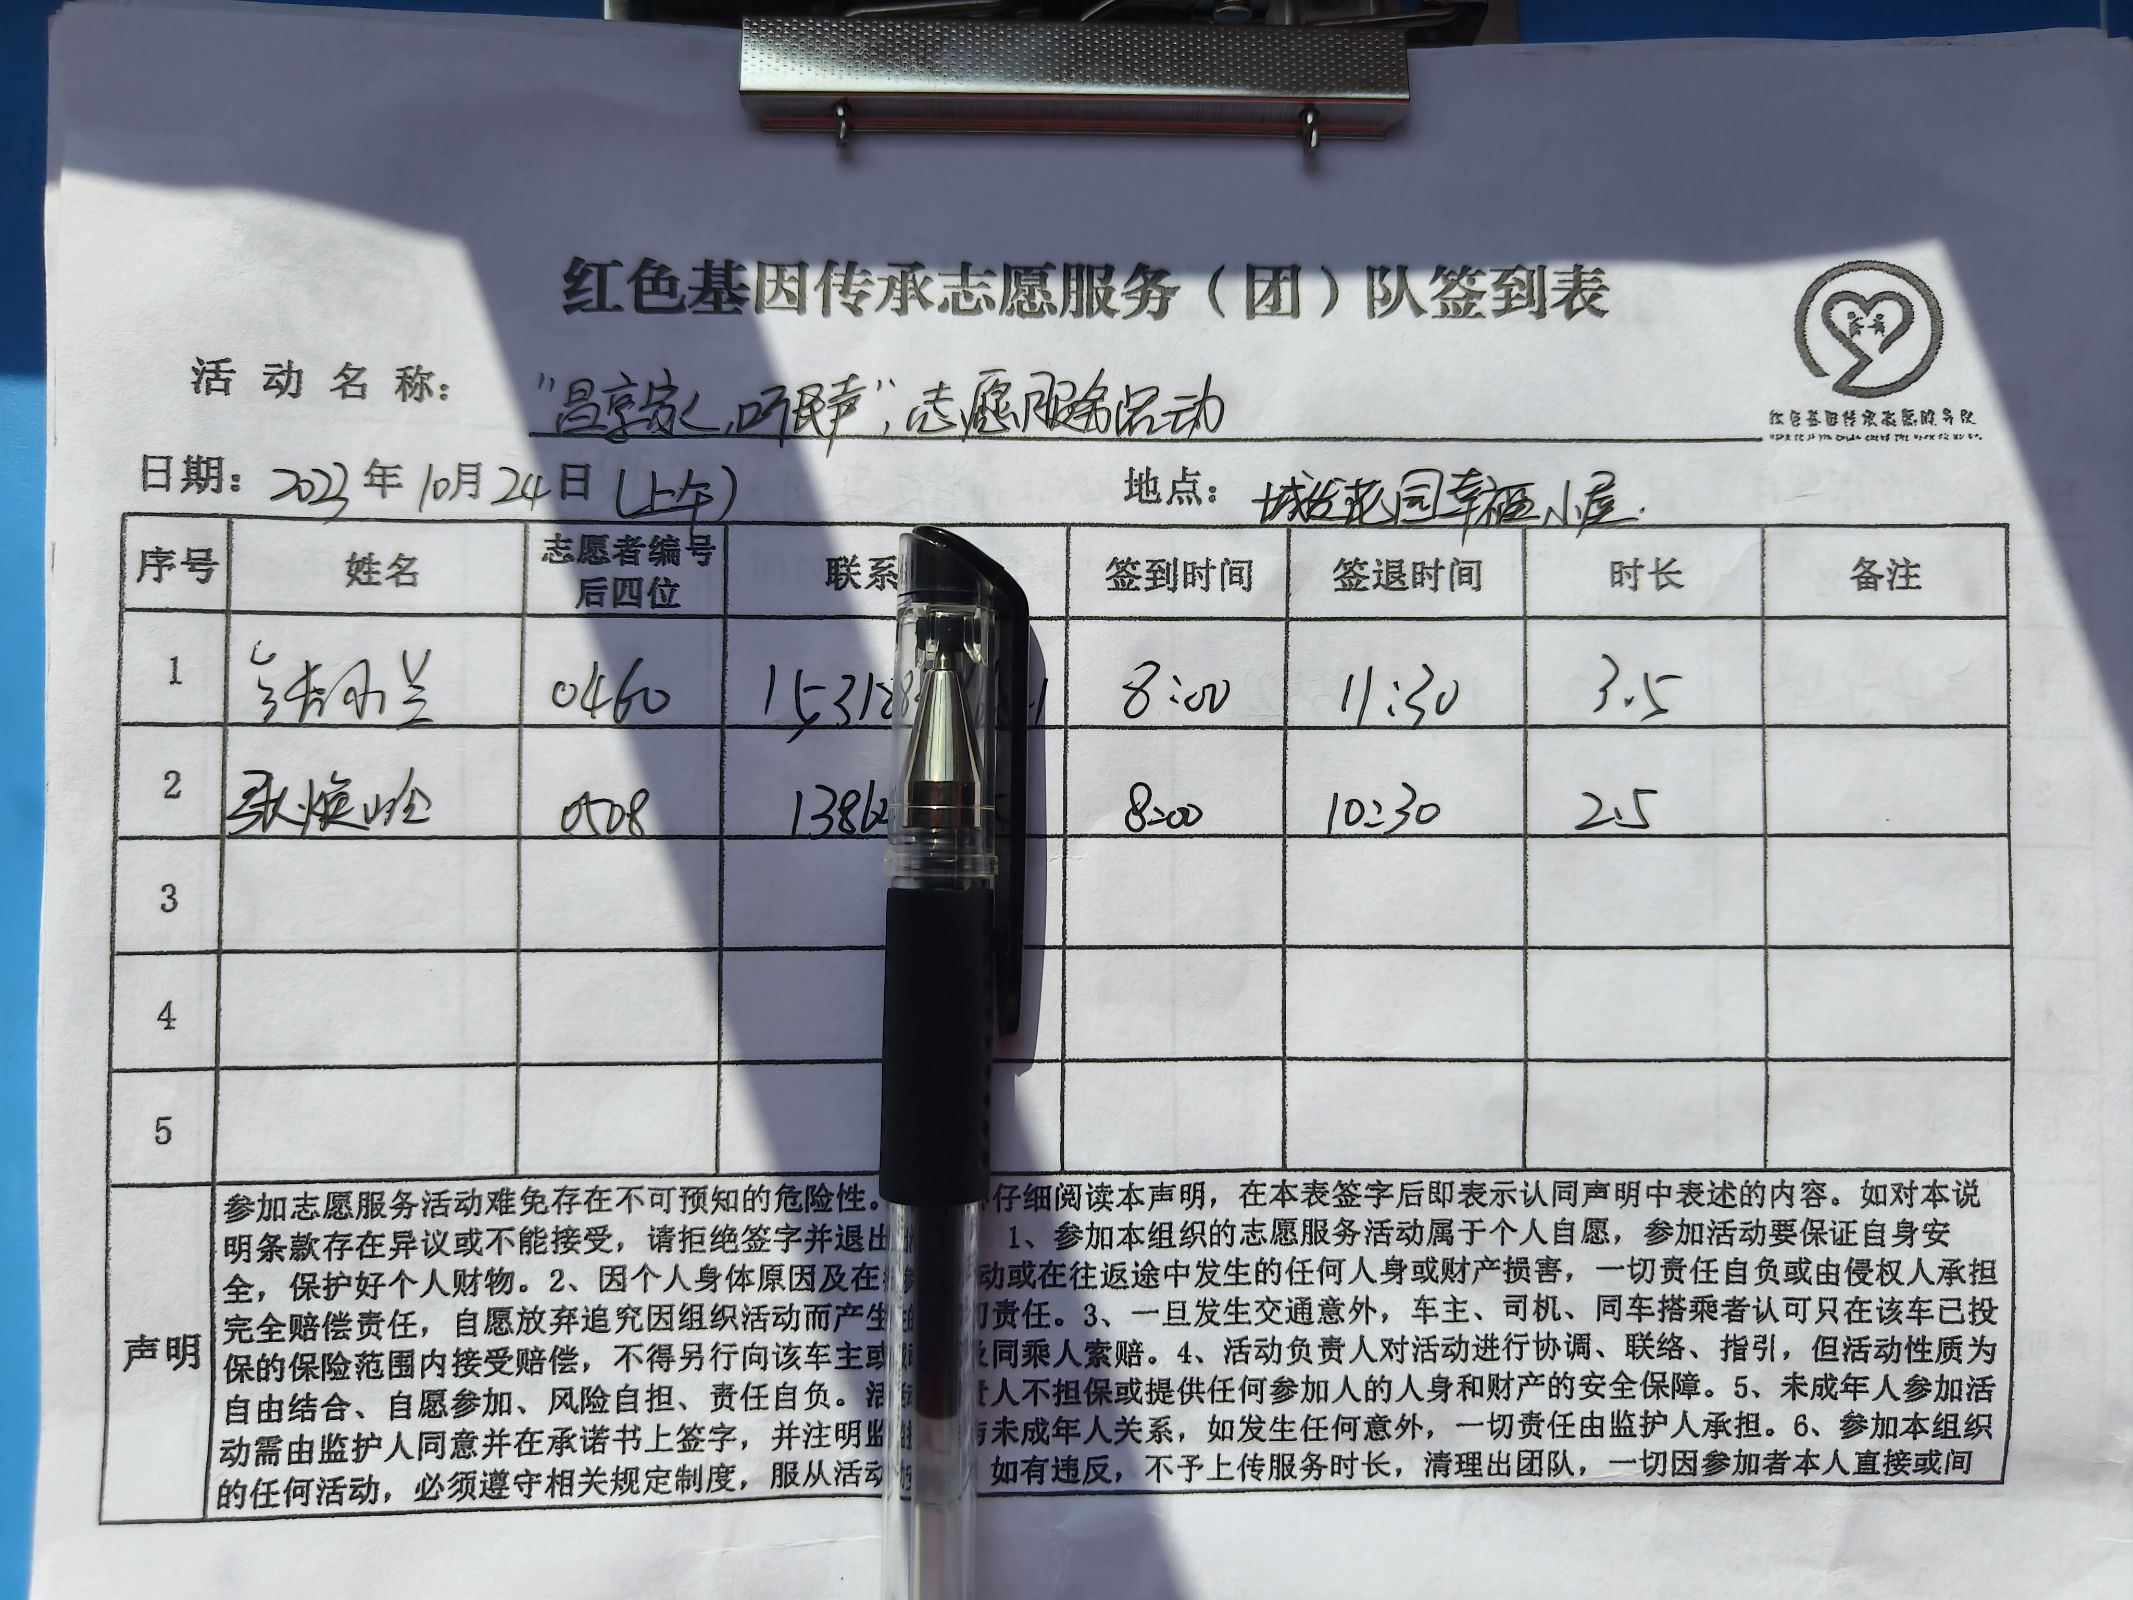 红色基因传承志愿服务（团）队签到表
活动名称： “昌享家人，听民声”志愿服务活动
红色基因传承志愿服务队
日期：2023年10月24日（上午） 地点：城发花园幸福小屋
序号 姓名 志愿者编号后四位 联系 签到时间 签退时间 时长 备注
1 0460 15318 8:00 11:30 3.5
2 张焕玲 0508 1386 8:00 10:30 2.5
3
4
5
声明
参加志愿服务活动难免存在不可预知的危险性。 仔细阅读本声明，在本表签字后即表示认同声明中表述的内容。如对本说
明条款存在异议或不能接受，请拒绝签字并退出 1、参加本组织的志愿服务活动属于个人自愿，参加活动要保证自身安
全，保护好个人财物。2、因个人身体原因及在 动或在往返途中发生的任何人身或财产损害，一切责任自负或由侵权人承担
完全赔偿责任，自愿放弃追究因组织活动而产生 责任。3、一旦发生交通意外，车主、司机、同车搭乘者认可只在该车已投
保的保险范围内接受赔偿，不得另行向该车主或 同乘人索赔。4、活动负责人对活动进行协调、联络、指引，但活动性质为
自由结合、自愿参加、风险自担、责任自负。活 责人不担保或提供任何参加人的人身和财产的安全保障。5、未成年人参加活
动需由监护人同意并在承诺书上签字，并注明监 与未成年人关系，如发生任何意外，一切责任由监护人承担。6、参加本组织
的任何活动，必须遵守相关规定制度，服从活动 如有违反，不予上传服务时长，清理出团队，一切因参加者本人直接或间